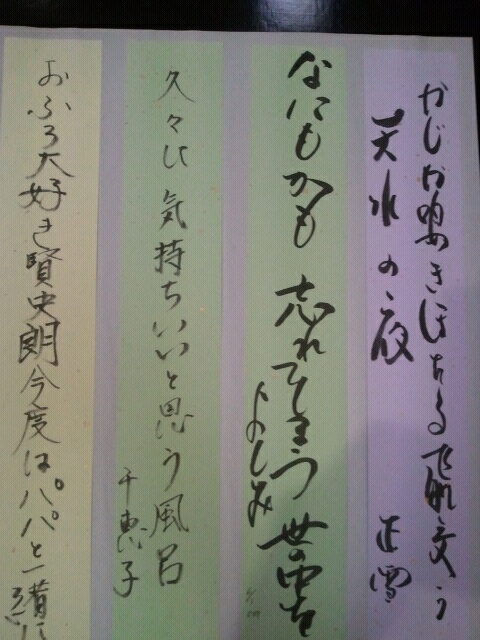 かじか鳴きほたる飛交う
天水の夜 正雪
なにもかも 忘れてしまう 世の中を
よしみ
久々に 気持ちいいと思う風呂
千恵子
おふろ大好き賢史朗今度はパパと一緒に